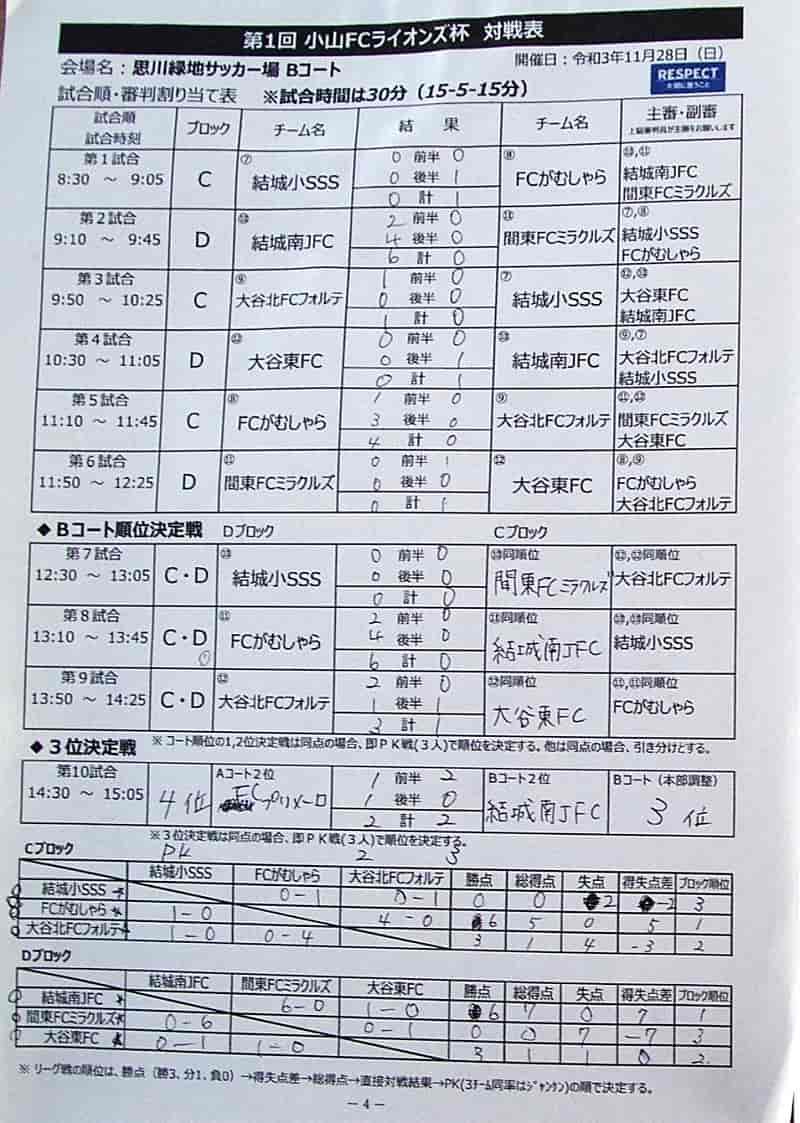 第1回 小山FCライオンズ杯 対戦表
会場名：思川緑地サッカー場 Bコート 開催日：令和3年11月28日（日）
RESPECT
試合順・審判割り当て表 ※試合時間は30分（15-5-15分）
試合順 試合時刻 ブロック チーム名 結 果 チーム名 主審・副審
第1試合 8:30 ～ 9:05 C ⑦ 結城小SSS 0 前半 0 ⑧ FCがむしゃら ⑩,⑪ 結城南JFC
0 後半 1 間東FCミラクルズ
0 計 1
第2試合 9:10 ～ 9:45 D ⑩ 結城南JFC 2 前半 0 ⑪ 間東FCミラクルズ ⑦,⑧ 結城小SSS
4 後半 0 FCがむしゃら
6 計 0
第3試合 9:50 ～ 10:25 C ⑨ 大谷北FCフォルテ 1 前半 0 ⑦ 結城小SSS ⑫,⑩ 大谷東FC
0 後半 0 結城南JFC
1 計 0
第4試合 10:30 ～ 11:05 D ⑫ 大谷東FC 0 前半 0 ⑩ 結城南JFC ⑨,⑦ 大谷北FCフォルテ
0 後半 1 結城小SSS
0 計 1
第5試合 11:10 ～ 11:45 C ⑧ FCがむしゃら 1 前半 0 ⑨ 大谷北FCフォルテ ⑪,⑫ 間東FCミラクルズ
3 後半 0 大谷東FC
4 計 0
第6試合 11:50 ～ 12:25 D ⑪ 間東FCミラクルズ 0 前半 1 ⑫ 大谷東FC ⑧,⑨ FCがむしゃら
0 後半 0 大谷北FCフォルテ
0 計 1
◆ Bコート順位決定戦 Dブロック Cブロック
第7試合 12:30 ～ 13:05 C・D 結城小SSS 0 前半 0 同順位 間東FCミラクルズ 同順位 大谷北FCフォルテ
0 後半 0
0 計 0
第8試合 13:10 ～ 13:45 C・D FCがむしゃら 2 前半 0 同順位 結城南JFC 同順位 結城小SSS
4 後半 0
6 計 0
第9試合 13:50 ～ 14:25 C・D 大谷北FCフォルテ 2 前半 0 同順位 大谷東FC 同順位 FCがむしゃら
1 後半 1
3 計 1
※ コート順位の1,2位決定戦は同点の場合、即ＰＫ戦(３人)で順位を決定する。他は同点の場合、引き分けとする。
◆ ３位決定戦
第10試合 14:30 ～ 15:05 4位 Aコート２位 FCプリメーロ 1 前半 2 Bコート２位 結城南JFC Bコート（本部調整） 3位
1 後半 0
2 計 2
※３位決定戦は同点の場合、即ＰＫ戦(３人)で順位を決定する。
PK 2 3
Cブロック
結城小SSS FCがむしゃら 大谷北FCフォルテ 勝点 総得点 失点 得失点差 ブロック順位
結城小SSS 0-1 0-1 0 0 2 -2 3
FCがむしゃら 1-0 4-0 6 5 0 5 1
大谷北FCフォルテ 1-0 0-4 3 1 4 -3 2
Dブロック
結城南JFC 間東FCミラクルズ 大谷東FC 勝点 総得点 失点 得失点差 ブロック順位
結城南JFC 6-0 1-0 6 7 0 7 1
間東FCミラクルズ 0-6 0-1 0 0 7 -7 3
大谷東FC 0-1 1-0 3 1 1 0 2
※ リーグ戦の順位は、勝点（勝3、分1、負0）→得失点差→総得点→直接対戦結果→PK(3チーム同率はジャンケン)の順で決定する。
－4－